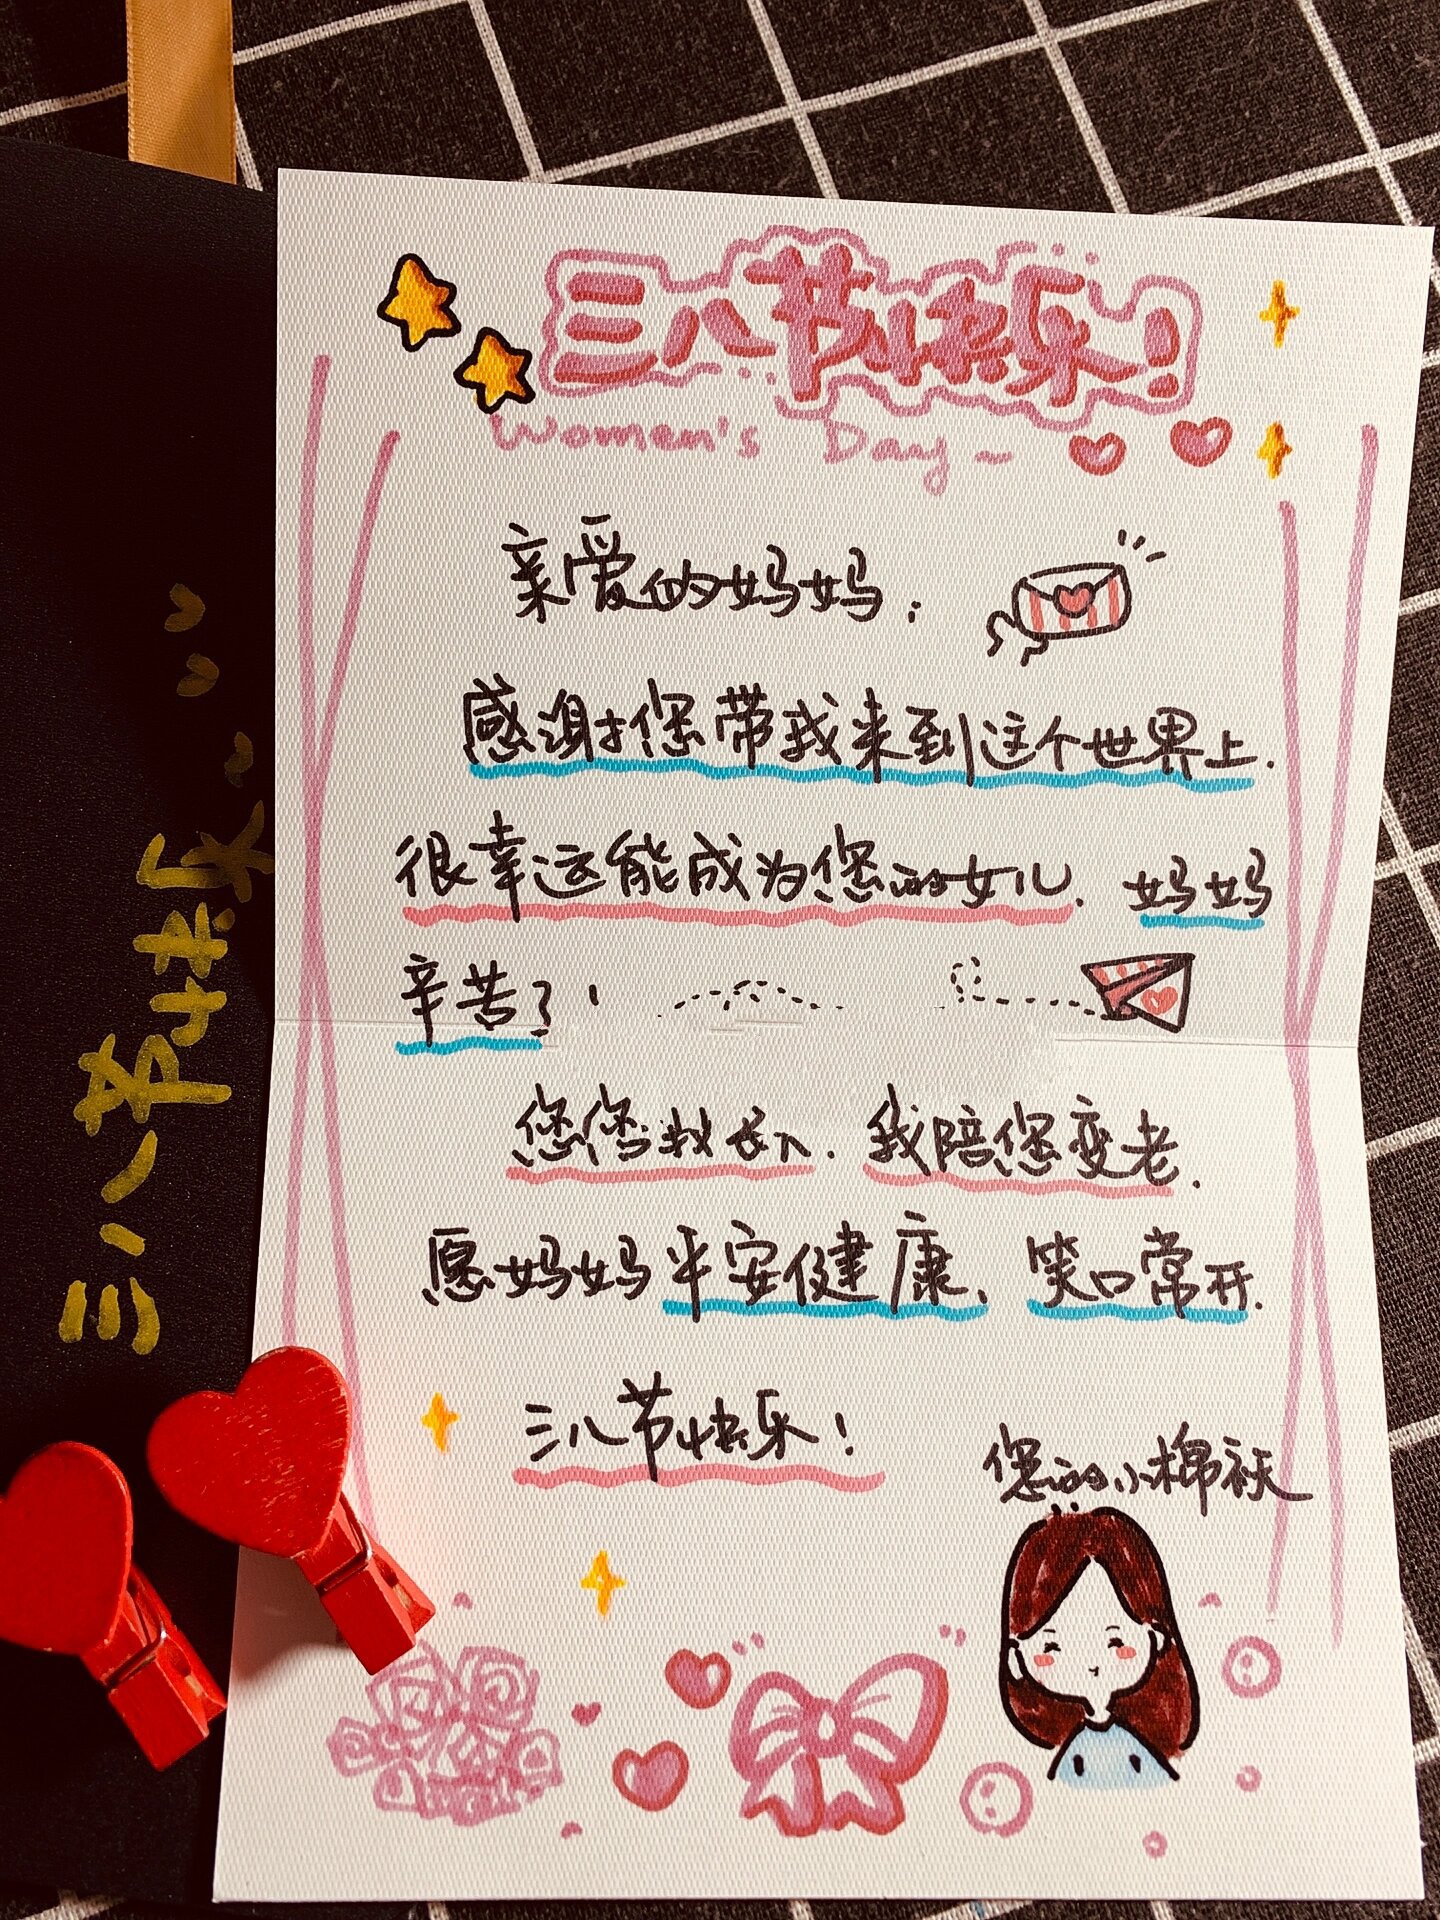 三八节快乐!
Women's Day~
亲爱的妈妈:
感谢您带我来到这个世界上.
很幸运能成为您的女儿. 妈妈
辛苦了!
您您 我陪您变老.
愿妈妈平安健康、笑口常开.
三八节快乐!
您的小棉袄
三八节快乐~